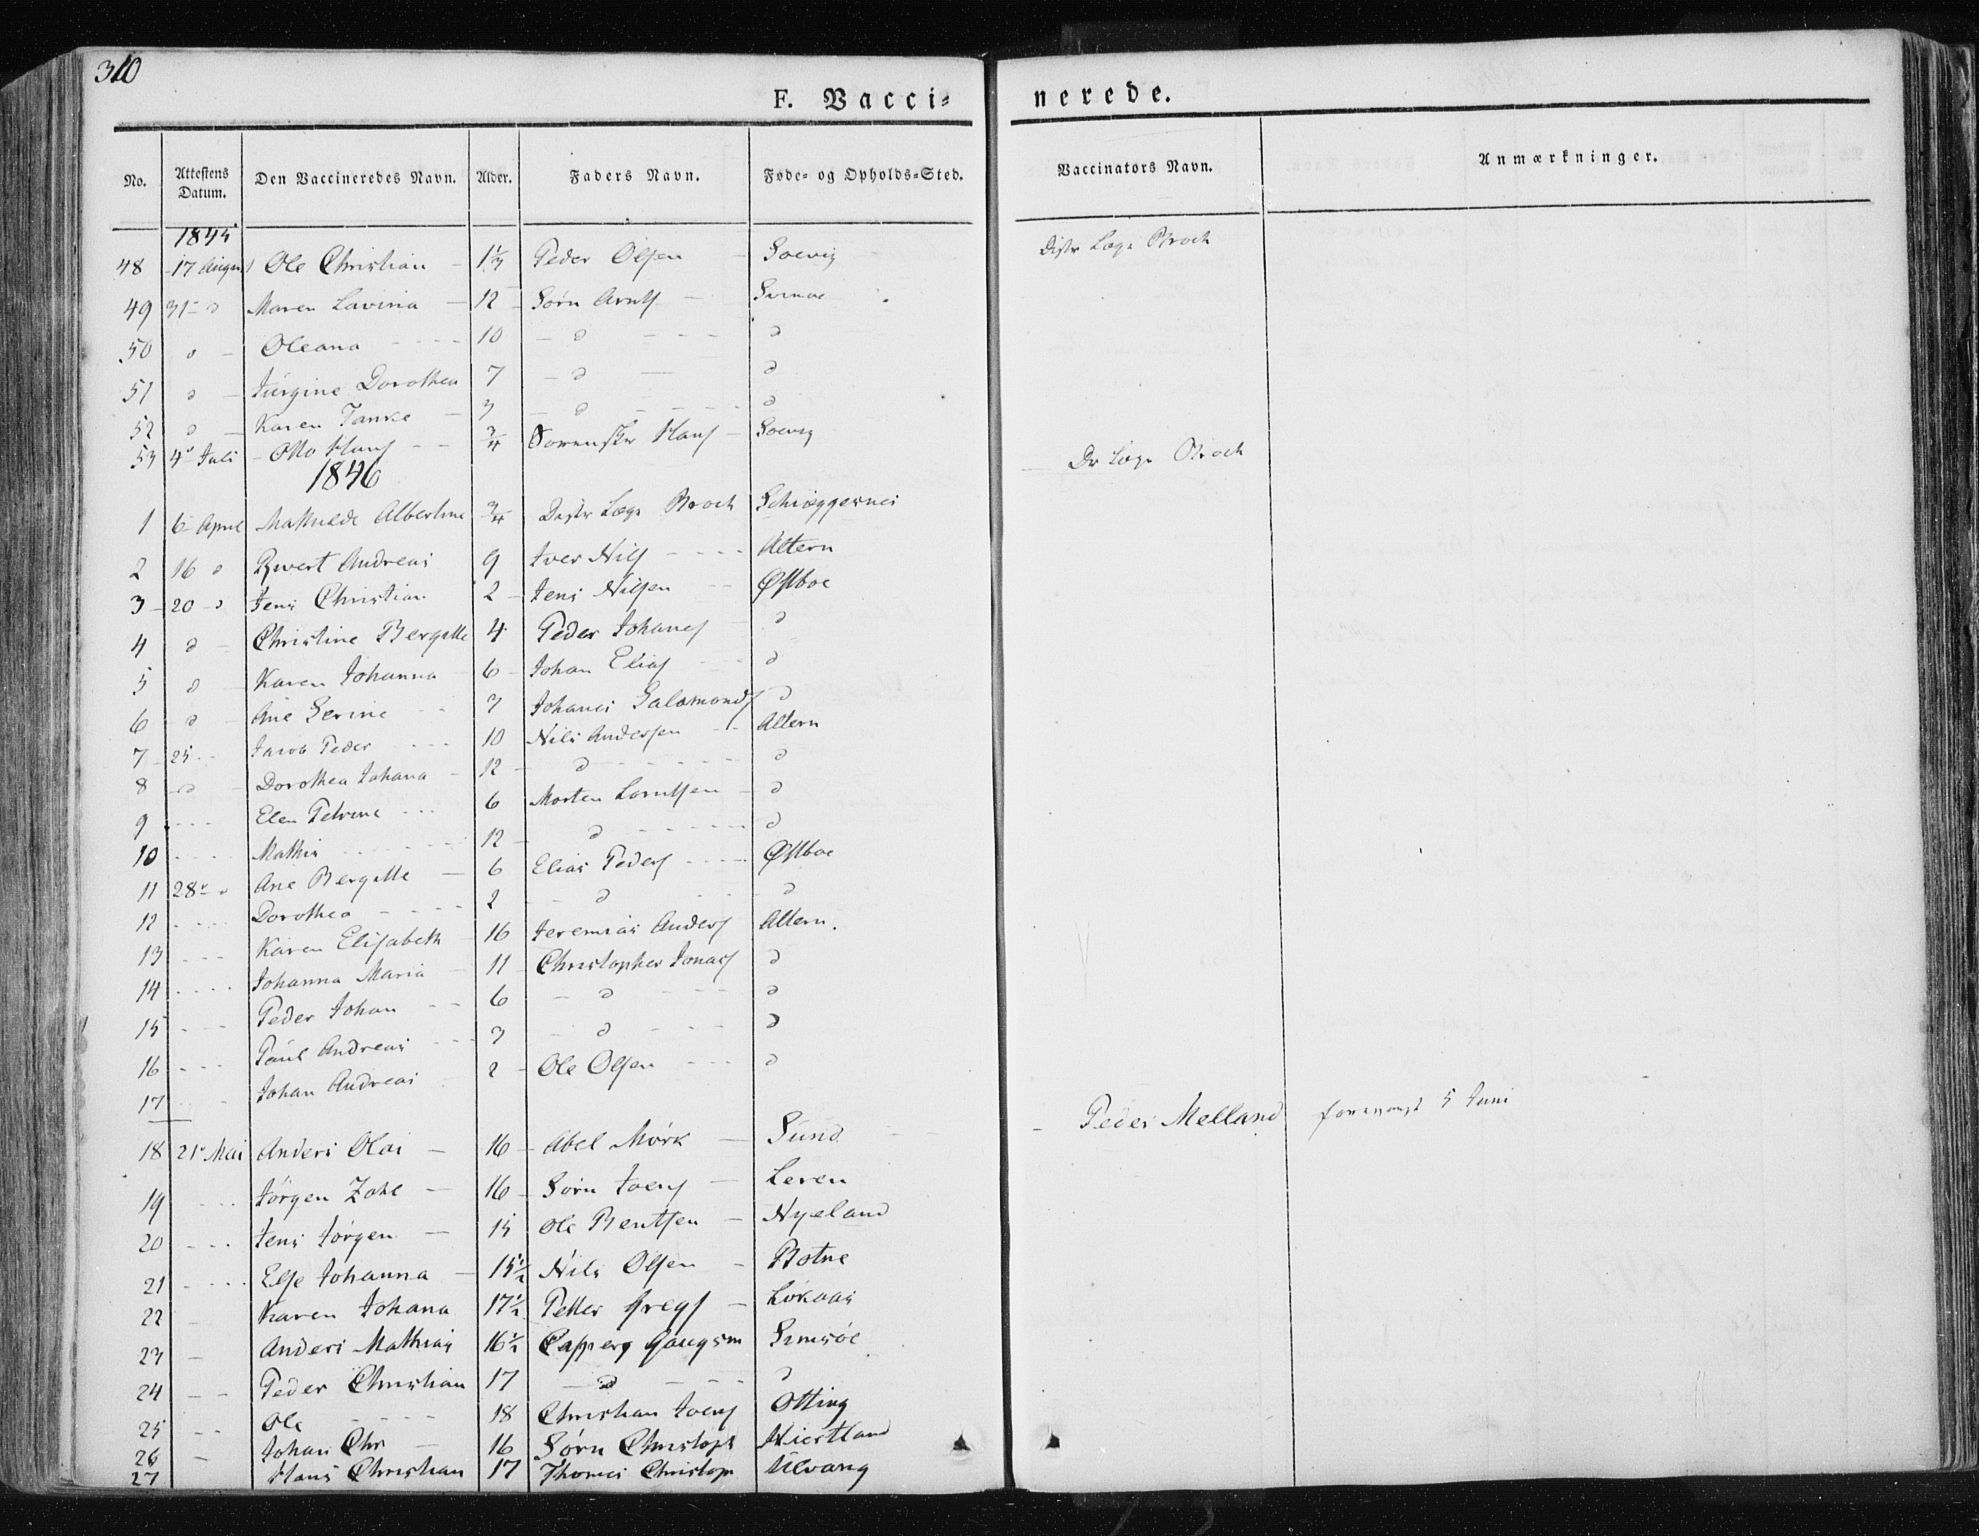 310
F. Vacci- nerede.
No. Attestens Datum. Den Vaccineredes Navn. Alder. Faders Navn. Føde- og Opholds-Sted. Vaccinators Navn. Anmærkninger.
1845
48 17 August Ole Christian 1 1/3 Peder Olsen Soevig Distr Læge Broch
49 31 d Maren Lavina 12 Sørn
50 d Oleana 10 d d
51 d Jürgine Dorothea 7 d d
52 d Karen Tanke 3 d d
53 4 Juli Otto Hans 3/4 Sorenskr Hans Soevig Dr Læge Broch
1846
1 6 April Mathilde Albertine 3/4 Distr Læge Broch
2 16 d Andreas 9 Iver Nils Altern
3 20 d Jens Christian 2 Jens Nilsen Østboe
4 d Christine Bergitte 4 Peder Johans d
5 d Karen Johanna 6 Johan Elias d
6 d Ane Serine 7 Johanes Salomonds d
7 25 Jacob Peder 10 Nils Andersen Altern
8 d Dorothea Johana 12 d d
9 Elen Petrine 6 Morten Larntsen d
10 Mathis 12 d d
11 28 d Ane Bergitte 6 Elias Peders Østboe
12 Dorothea 2 d d
13 Karen Elisabeth 16 Jeremias Anders Altern.
14 Johanna Maria 11 Christopher Jonas d
15 Peder Johan 6 d d
16 Paul Andreas 3 d d
17 Johan Andreas 2 Ole Olsen d
18 21 Mai Anders Olai 16 Abel Mörk Sund Peder Melland 5 Juni
19 Jörgen 16 Sørn Joens Leren
20 Jens Jörgen 15 Ole Bentsen Nyeland
21 Else Johanna 15 1/2 Nils Olsen Botne
22 Karen Johana 17 1/2 Petter Gregs
23 Anders Mathias 16 1/2
24 Peder Christian 17 d d
25 Ole 18 Christian Joens Otting
26 Johan Chr 16 Sørn Christoph Hiertland
27 Hans Christian 17 Thomes Christop Ulvang